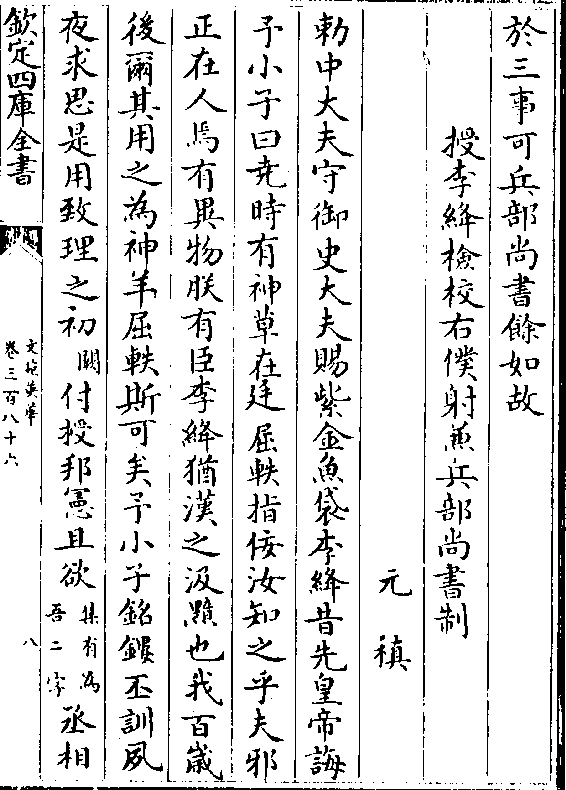 於三事可兵部尚書餘如故
授李絳檢校右僕射兼兵部尚書制
元稹
勅中大夫守御史大夫賜紫金魚袋李絳昔先皇帝誨
予小子曰堯時有神草在廷屈軼指佞汝知之乎夫邪
正在人焉有異物朕有臣李絳猶漢之汲黯也我百歲
後爾其用之為神羊屈軼斯可矣予小子銘鏤丕訓夙
夜求思是用致理之初闕付授邦憲且欲集有為吾二字丞相
欽定四庫全書
文苑英華
卷三百八十六
八